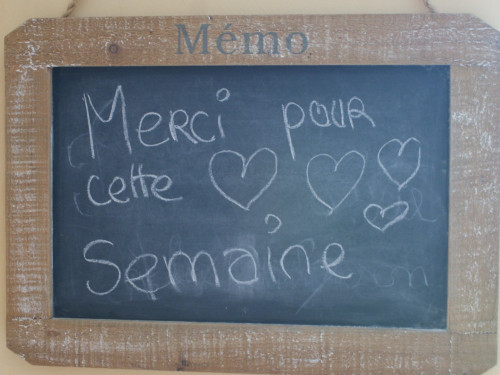 Mémo
Merci pour
cette
Semaine